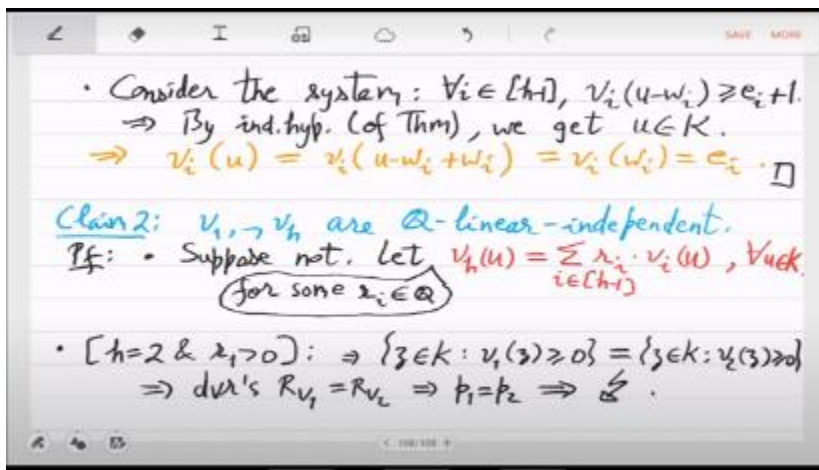 SAVE MORE
• Consider the system: ∀i ∈ [h-1], v_i(u-w_i) ≥ e_i+1.
⇒ By ind.hyp. (of Thm), we get u ∈ K.
⇒ v_i(u) = v_i(u-w_i+w_i) = v_i(w_i) = e_i. □
Claim 2: v_1,→ v_h are Q-linear-independent.
Pf: • Suppose not. Let v_h(u) = Σ_{i∈[h-1]} r_i · v_i(u), ∀u∈K
(for some r_i ∈ Q)
• [h=2 & r_1>0]: ⇒ {z∈K : v_1(z) ≥ 0} = {z∈K : v_2(z) ≥ 0}
⇒ dvr's R_{V_1} = R_{V_2} ⇒ p_1 = p_2 ⇒ ↯.